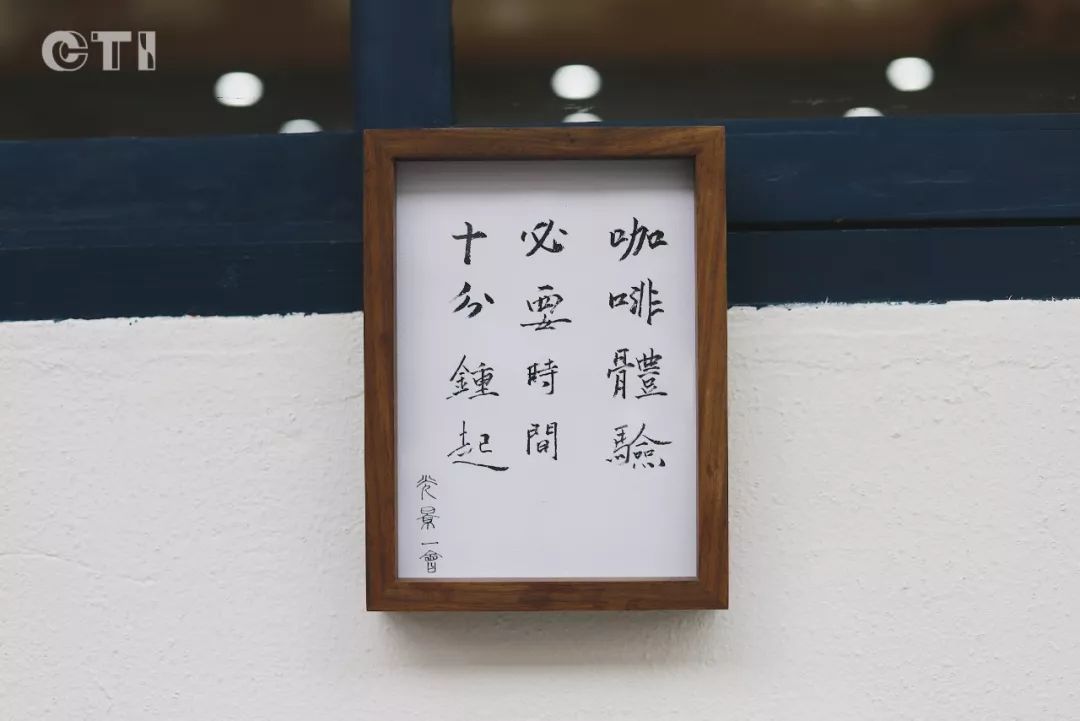 咖啡體驗
必要時間
十分鍾起
光景一會
CTI